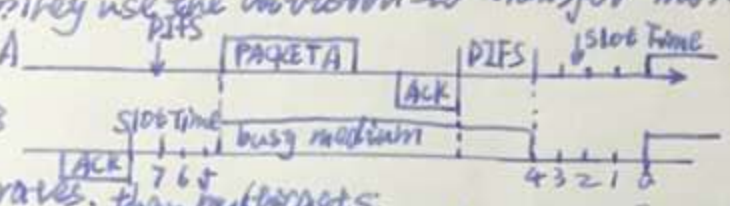 They use the
DIFS
A PACKET A DIFS Slot Time
ACK
B Slot Time busy medium
ACK 7 6 5 4 3 2 1 0